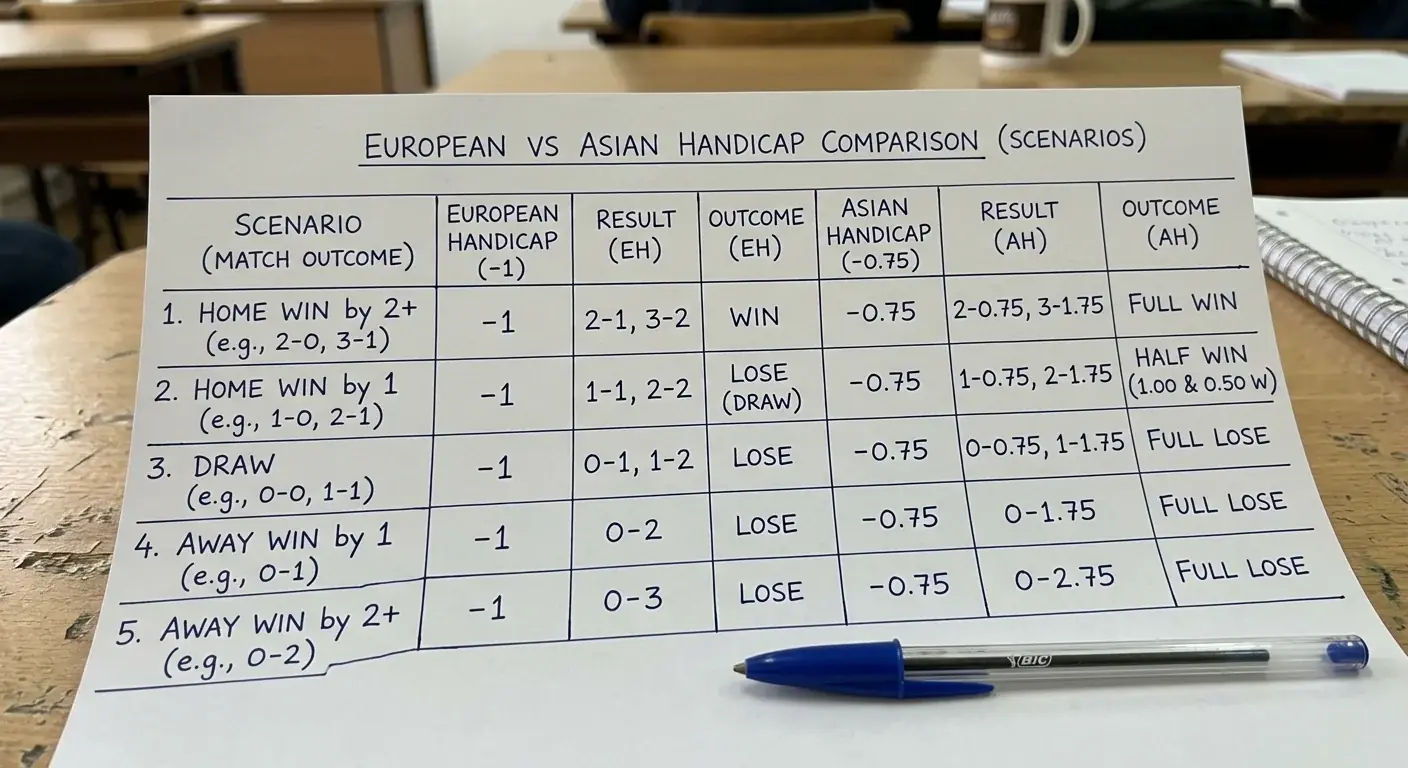 EUROPEAN VS ASIAN HANDICAP COMPARISON (SCENARIOS)
SCENARIO
(MATCH OUTCOME)
EUROPEAN
HANDICAP
(-1)
RESULT
(EH)
OUTCOME
(EH)
ASIAN
HANDICAP
(-0.75)
RESULT
(AH)
OUTCOME
(AH)
1. HOME WIN by 2+
(e.g., 2-0, 3-1)
-1
2-1, 3-2
WIN
-0.75
2-0.75, 3-1.75
FULL WIN
2. HOME WIN by 1
(e.g., 1-0, 2-1)
-1
1-1, 2-2
LOSE
(DRAW)
-0.75
1-0.75, 2-1.75
HALF WIN
(1.00 & 0.50 W)
3. DRAW
(e.g., 0-0, 1-1)
-1
0-1, 1-2
LOSE
-0.75
0-0.75, 1-1.75
FULL LOSE
4. AWAY WIN by 1
(e.g., 0-1)
-1
0-2
LOSE
-0.75
0-1.75
FULL LOSE
5. AWAY WIN by 2+
(e.g., 0-2)
-1
0-3
LOSE
-0.75
0-2.75
FULL LOSE
BIC